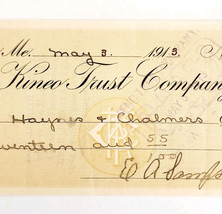 Me. May 3. 1913.
Kineo Trust Compan
Haynes & Chalmers
venteen and 55
100
E A Samps